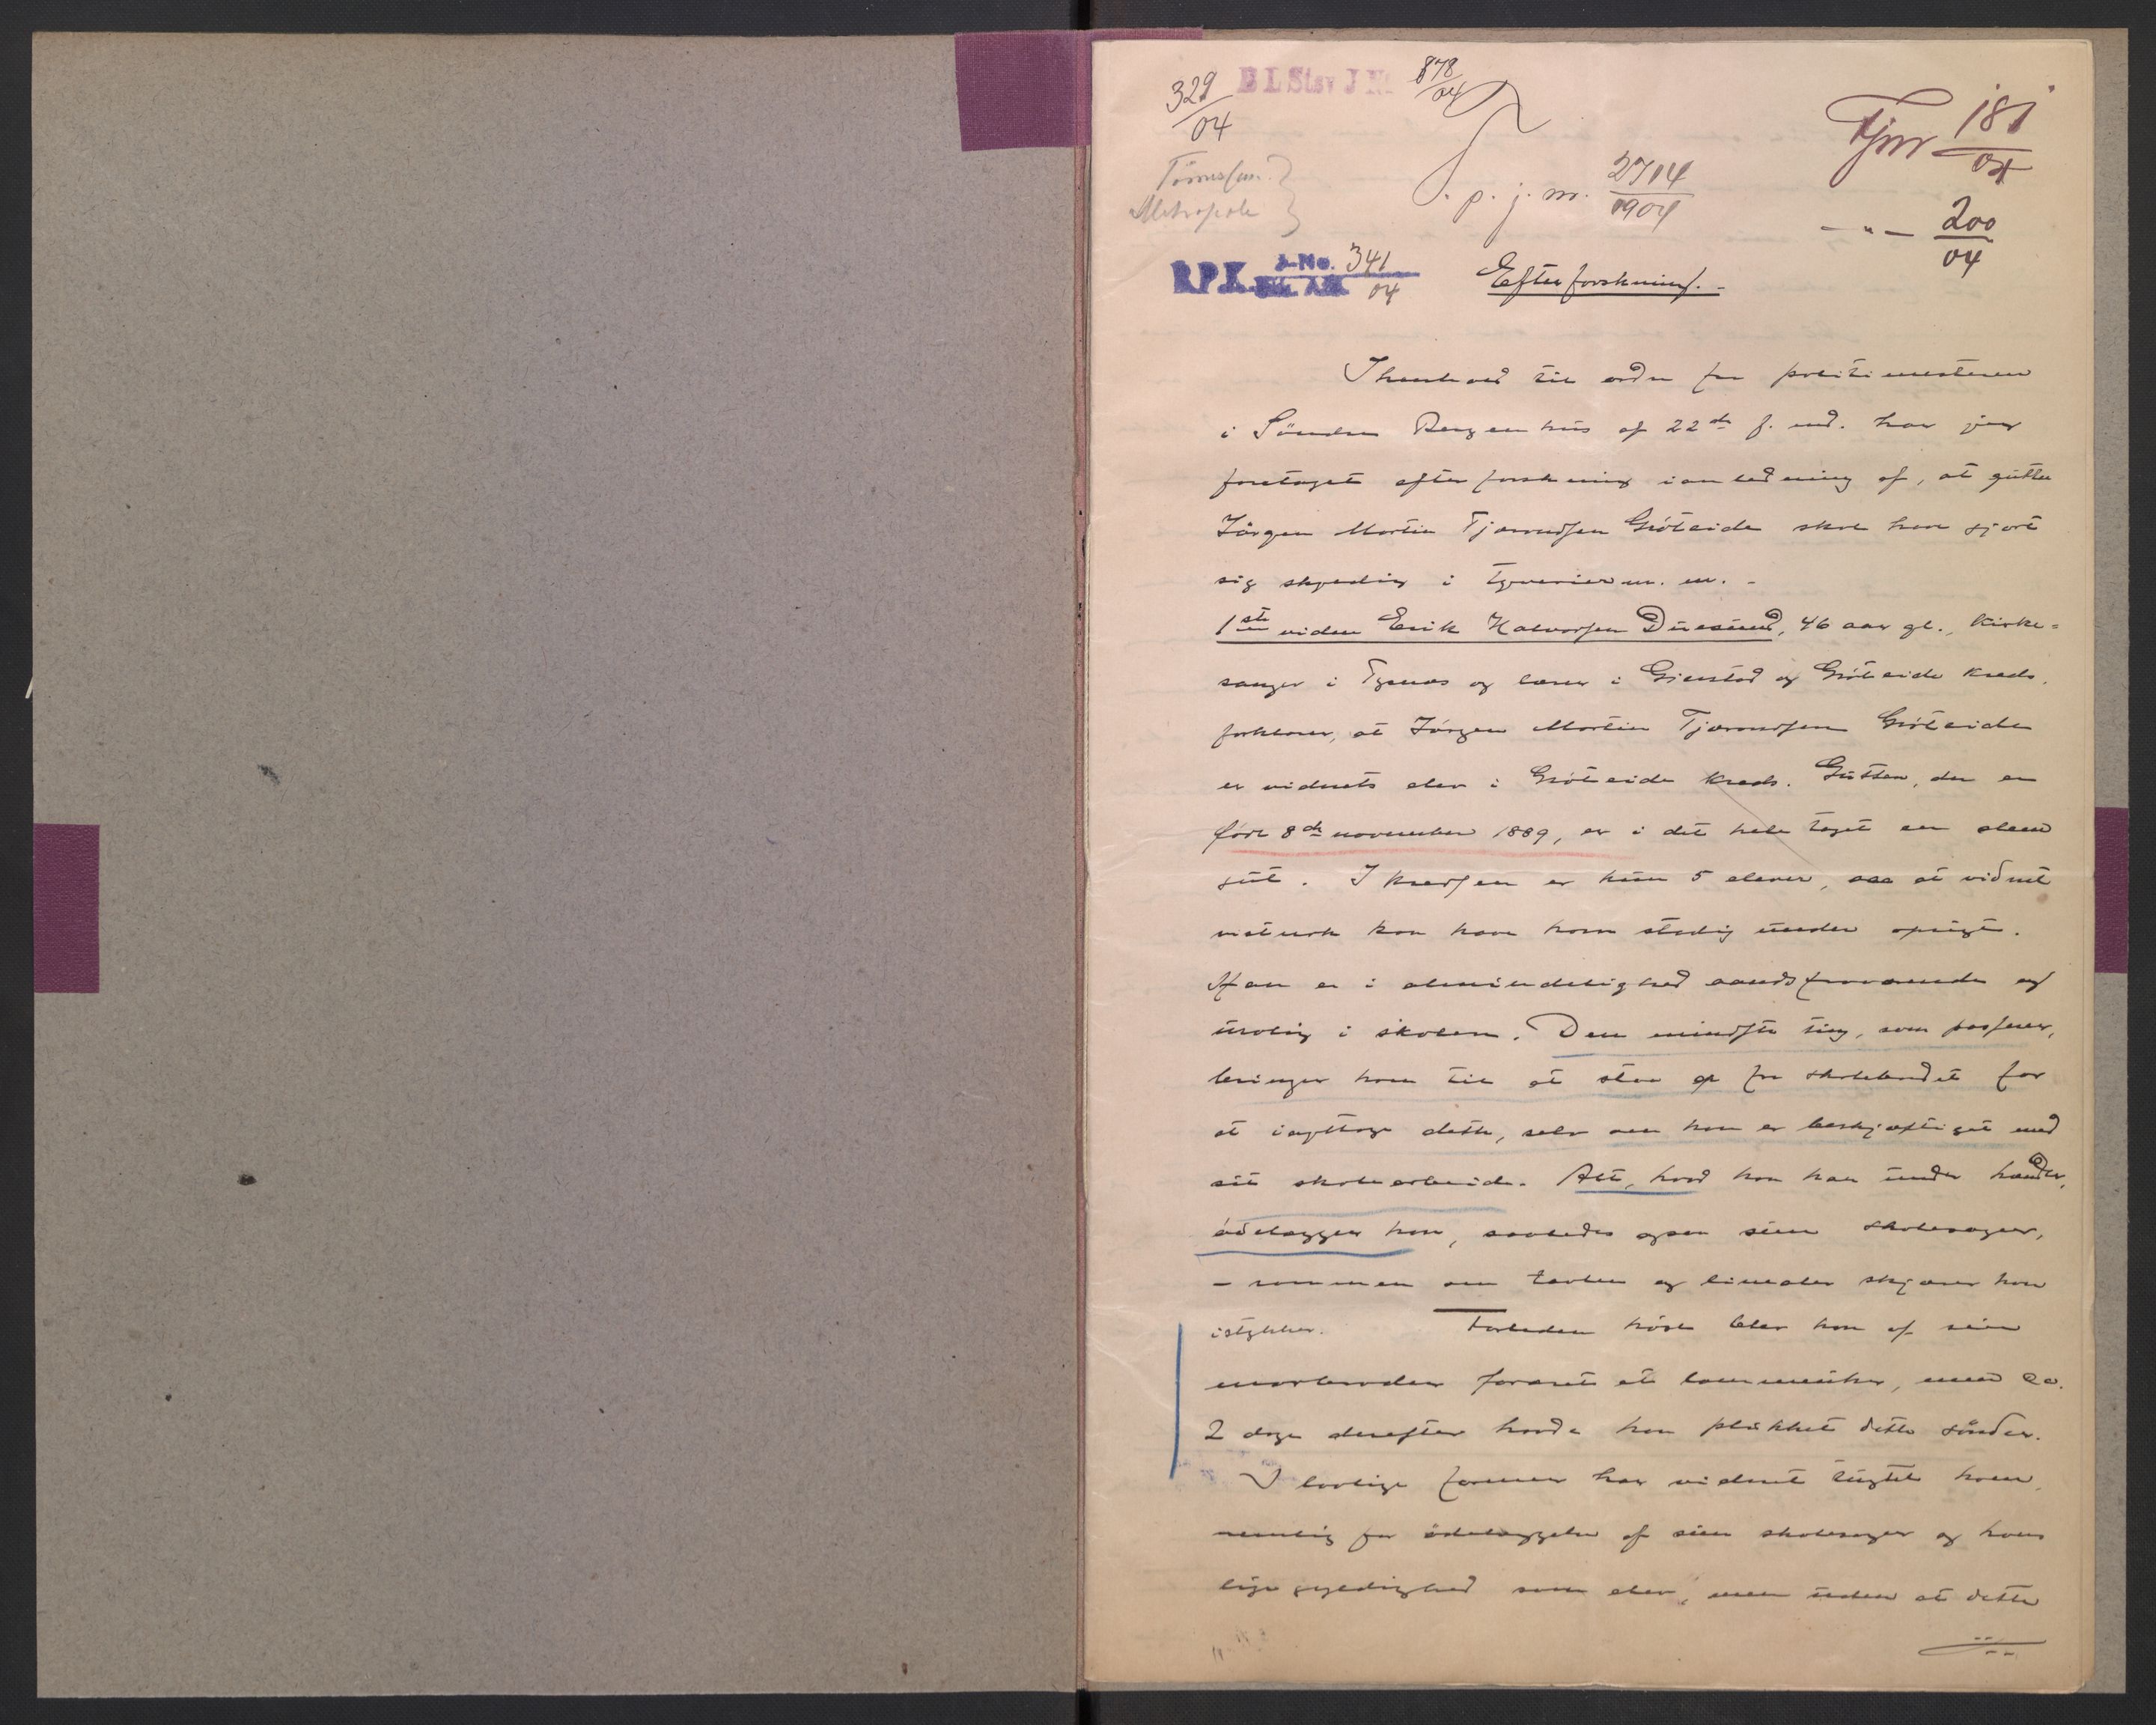 329/04 B L Stav J N: 878/04
Fjnr 181/04
S. p. j. nr. 2714/1904
Metropole
— " — 200/04
R.P.K. J-No. 341/04
Efterforskning. -
I henhold til ordre fra politimesteren
i Søndre Bergenhus af 22de f. md. har jeg
foretaget efterforskning i anledning af, at gutten
Jørgen Martin Tjærandsen Gröteide skal have gjort
sig skyldig i tyverier m. m. -
1ste vidne Erik Halvorsen Duesund, 46 aar gl., kirke=
sanger i Tysnes og lærer i Gjerstad og Gröteide kreds,
forklarer, at Jørgen Martin Tjærandsen Gröteide
er vidnets elev i Gröteide kreds. Gutten, der er
født 8de november 1889, er i det hele taget en slem
gut. I kredsen er kun 5 elever, saa at vidnet
 kan have ham stadig under opsigt.
Han er i almindelighed aandsfraværende og
urolig i skolen. Den mindste ting, som passerer,
bringer ham til at staa op fra skolebordet for
at iagttage dette, selv om han er beskjæftiget med
sit skolearbeide. Alt, hvad han har under hænder,
ödelægger han, saaledes ogsaa sine skolesager,
- rammen om tavlen og linealer skjærer han
istykker. Forleden høst blev han af sin
morbroder foræret et lommeuhr, men ca.
2 dage derefter havde han plukket dette sönder.
I lovlige former har vidnet tugtet ham,
nemlig for ödelæggelse af sine skolesager og hans
ligegyldighed som elev, men uden at dette